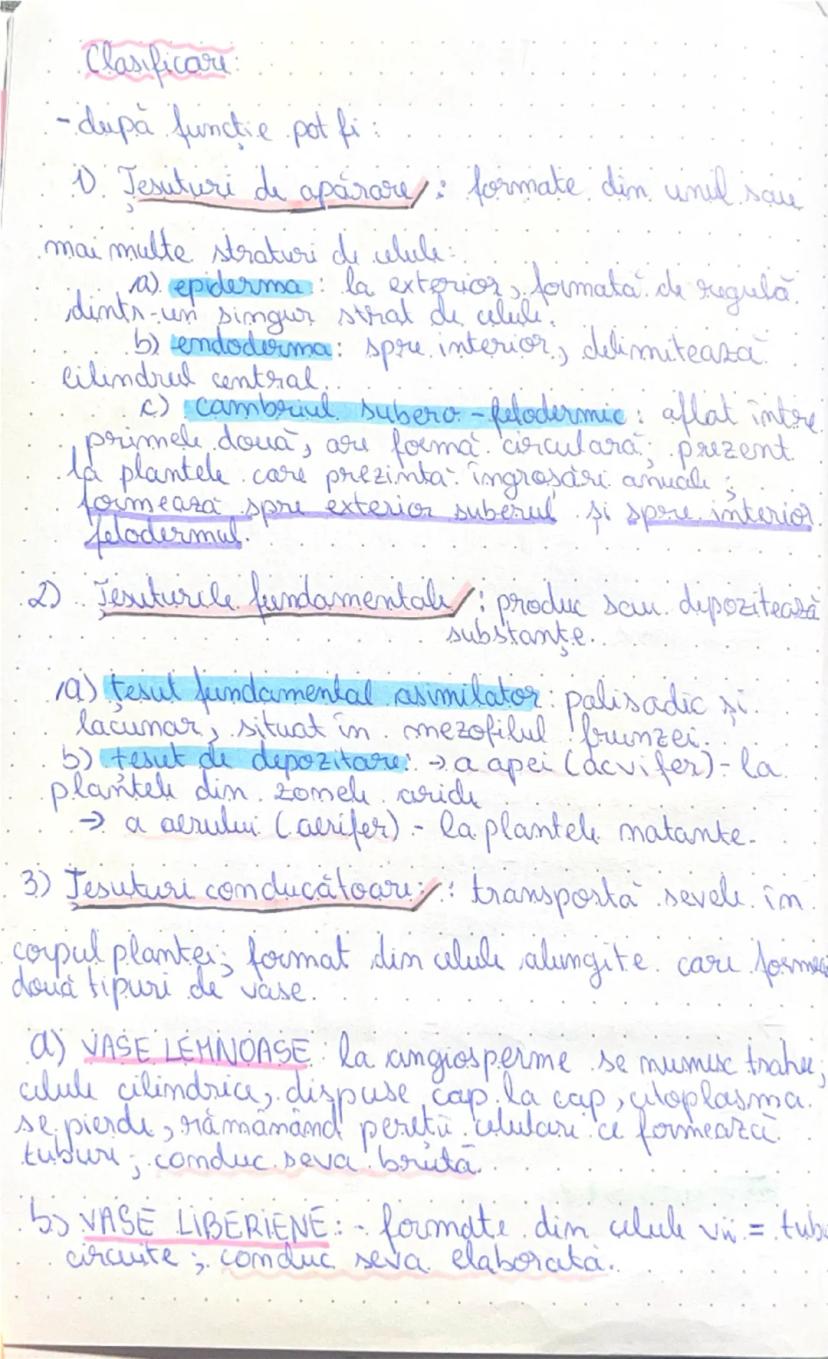 Clasificare:
- după funcție pot fi:
1) Țesuturi de apărare: formate din unul sau
mai multe straturi de celule:
a) epiderma: la exterior, formată de regulă
dintr-un singur strat de celule.
b) endoderma: spre interior, delimitează
cilindrul central.
c) cambriul subero-felodermic: aflat între
primele două, are formă circulară; prezent
la plantele care prezintă îngroșări anuale;
formează spre exterior suberul și spre interior
felodermul.
2) Țesuturile fundamentale: produc sau depozitează
substanțe.
a) țesut fundamental asimilator: palisadic și
lacunar, situat în mezofilul frunzei.
b) țesut de depozitare: → a apei (acvifer) - la
plantele din zonele aride
→ a aerului (aerifer) - la plantele natante.
3) Țesuturi conducătoare: : transportă sevele în
corpul plantei; format din celule alungite care formea
două tipuri de vase.
a) VASE LEMNOASE la angiosperme se numesc trahee;
celule cilindrice, dispuse cap la cap, citoplasma
se pierde, rămânând pereții celulari ce formează
tuburi; conduc seva brută
b) VASE LIBERIENE: - formate din celule vii = tub
ciuruite; conduc seva elaborată.